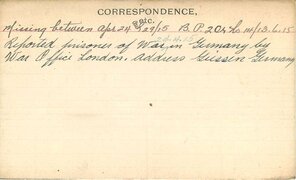 CORRESPONDENCE,
etc.
Missing between Apr 24 & 29/15 B.P. 204 13.6.15
Reported prisoner of War, in Germany by
War Office London. Address Giessen Germany